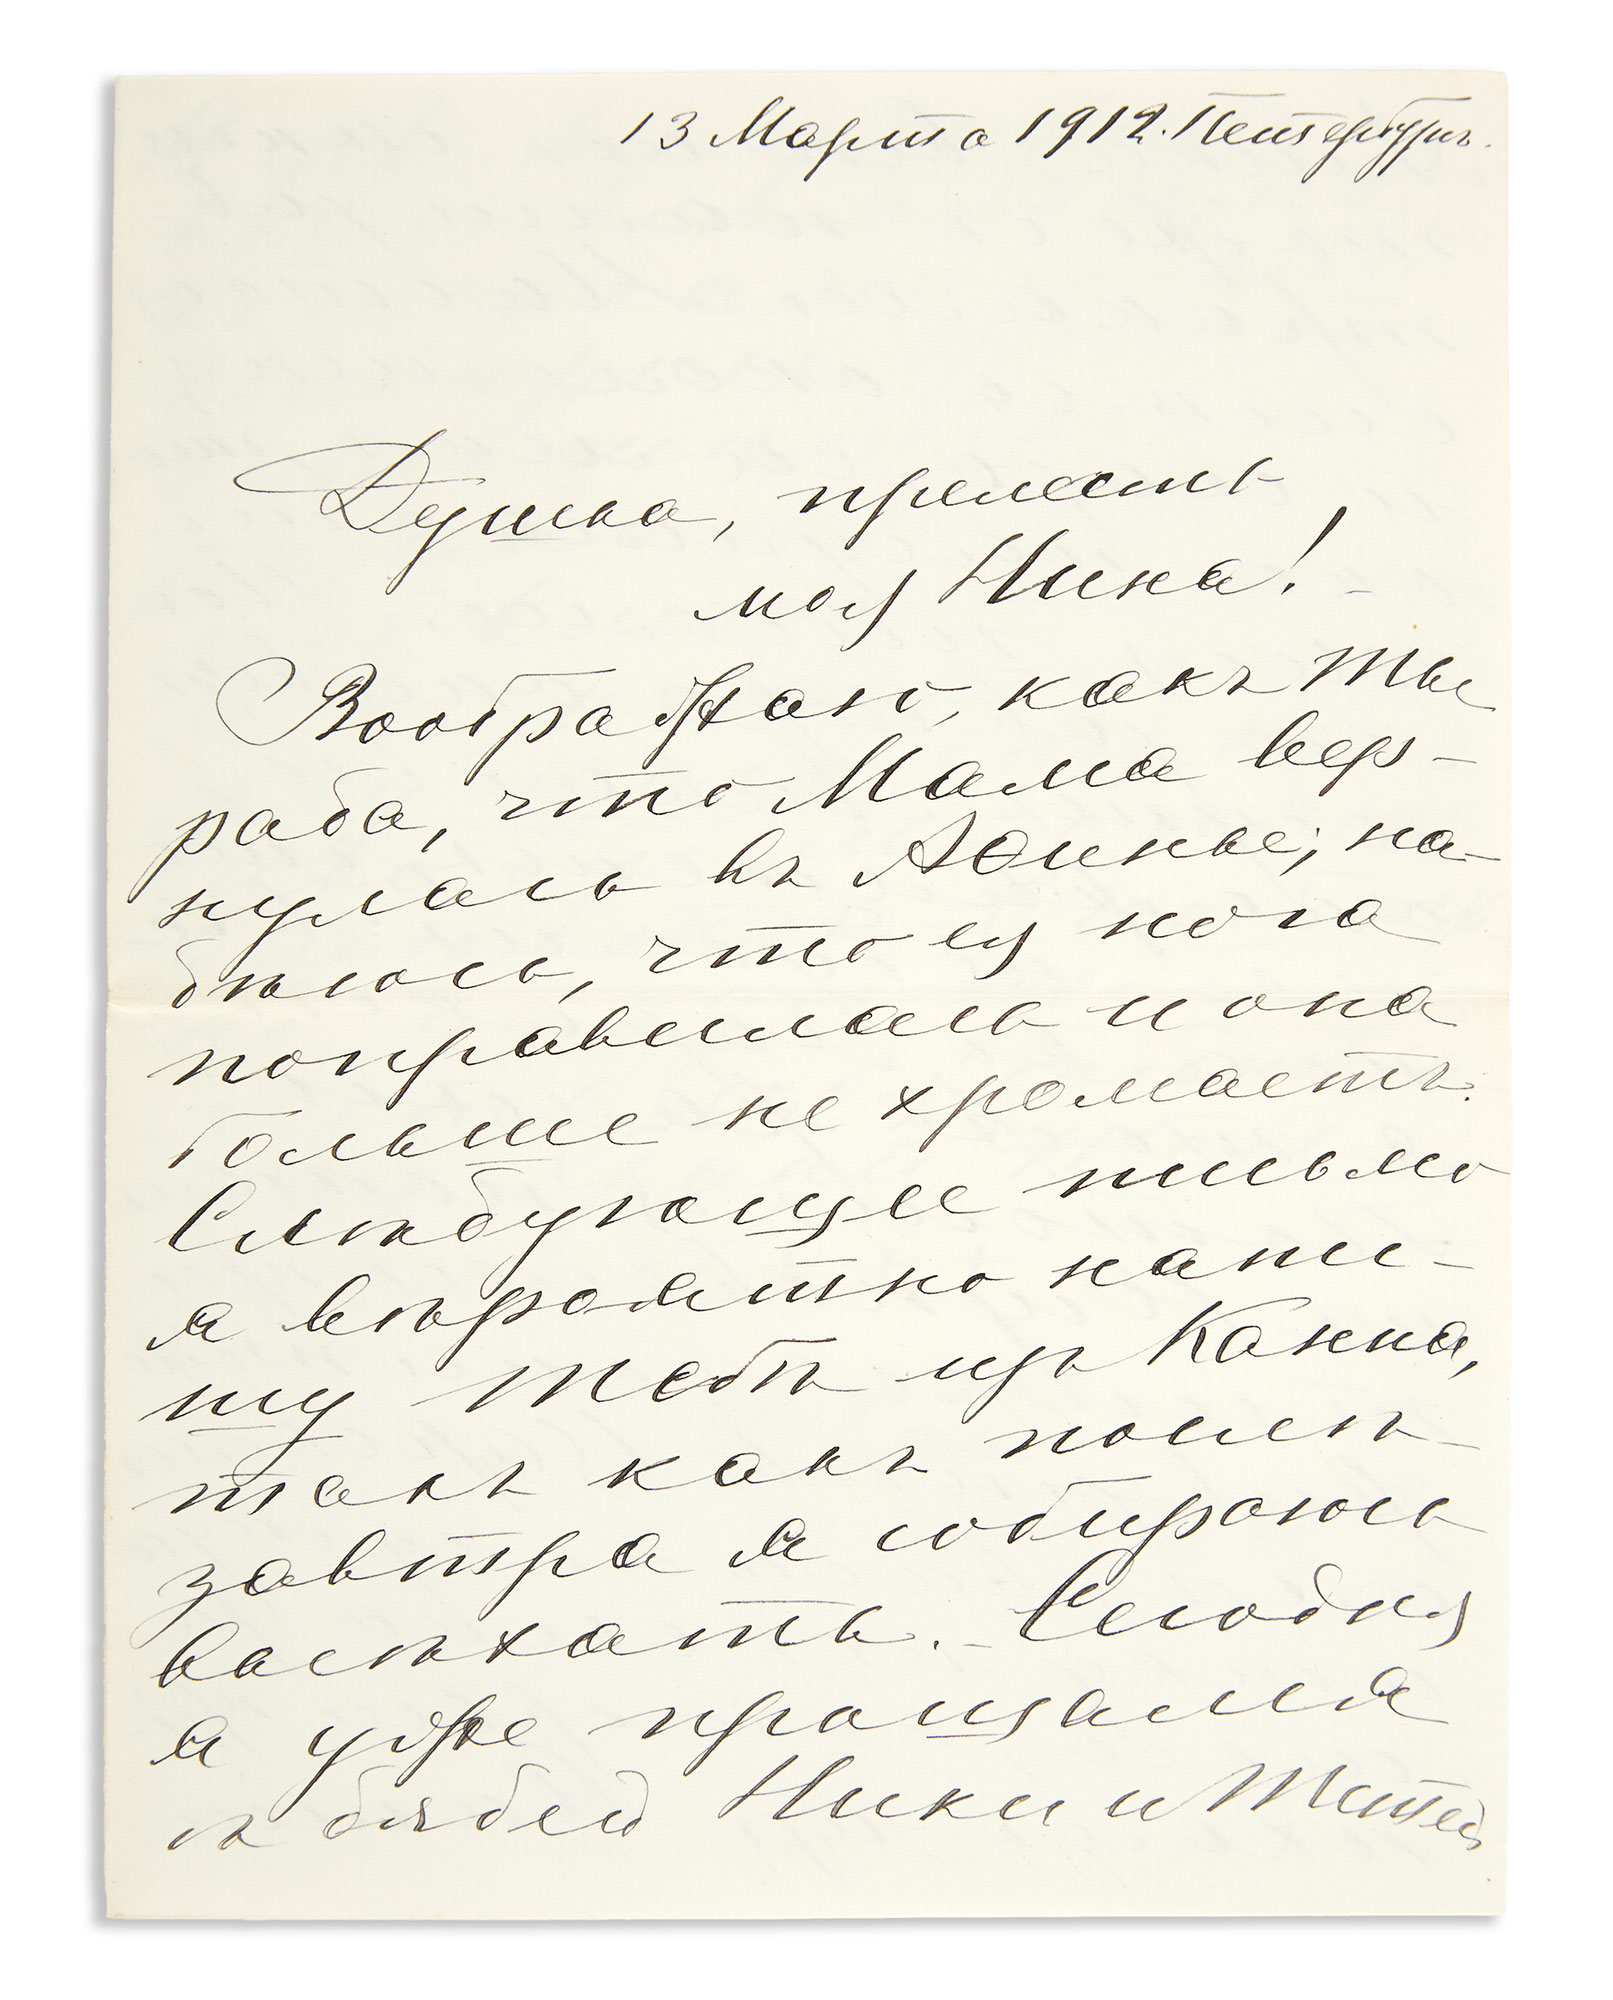 13 Марта 1912. Петербургъ.
Душка, прелесть
моя Нина! -
Воображаю, какъ ты
рада, что Мама вер-
нулась въ Аѳины; на-
дѣюсь, что ея нога
поправилась и она
больше не хромаетъ.
Слѣдующее письмо
я вѣроятно напи-
шу тебѣ изъ Канна,
такъ какъ послѣ-
завтра я собираюсь
выѣхать. - Сегодня
я уже прощался
съ дядей Ники и Тетей